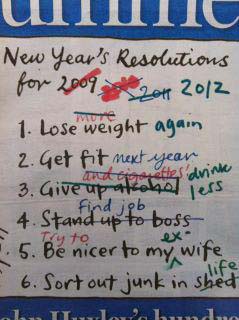 umme
New Year's Resolutions
for 2009 2011 2012
more
1. Lose weight again
2. Get fit next year
and cigarettes! drink
3. Give up alcohol less
Find job
4. Stand up to boss
Try to ex-
5. Be nicer to my wife
life
6. Sort out junk in shed
John Huxley's hundre